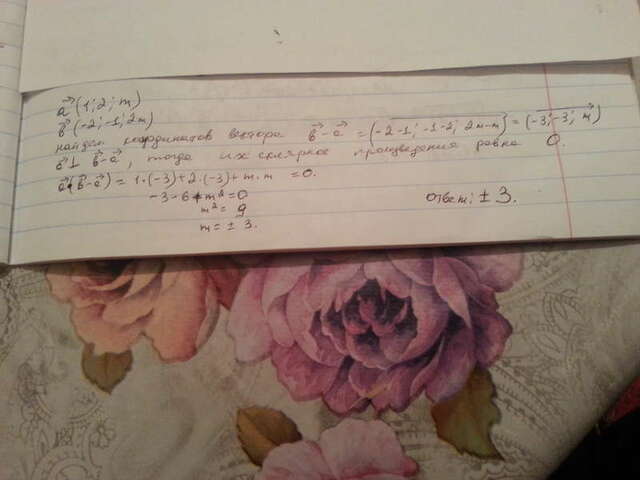 a⃗ (1; 2; m)
b⃗ (-2; -1; 2m)
найдем координатов вектора b⃗-a⃗ = (-2-1; -1-2; 2m-m) = (-3; -3; m)
a⃗ ⊥ b⃗-a⃗, тогда их скалярное произведения равна 0.
a⃗(b⃗-a⃗) = 1·(-3)+2·(-3)+m·m = 0.
-3-6+m²=0
m² = 9
m = ± 3.
Ответ: ± 3.